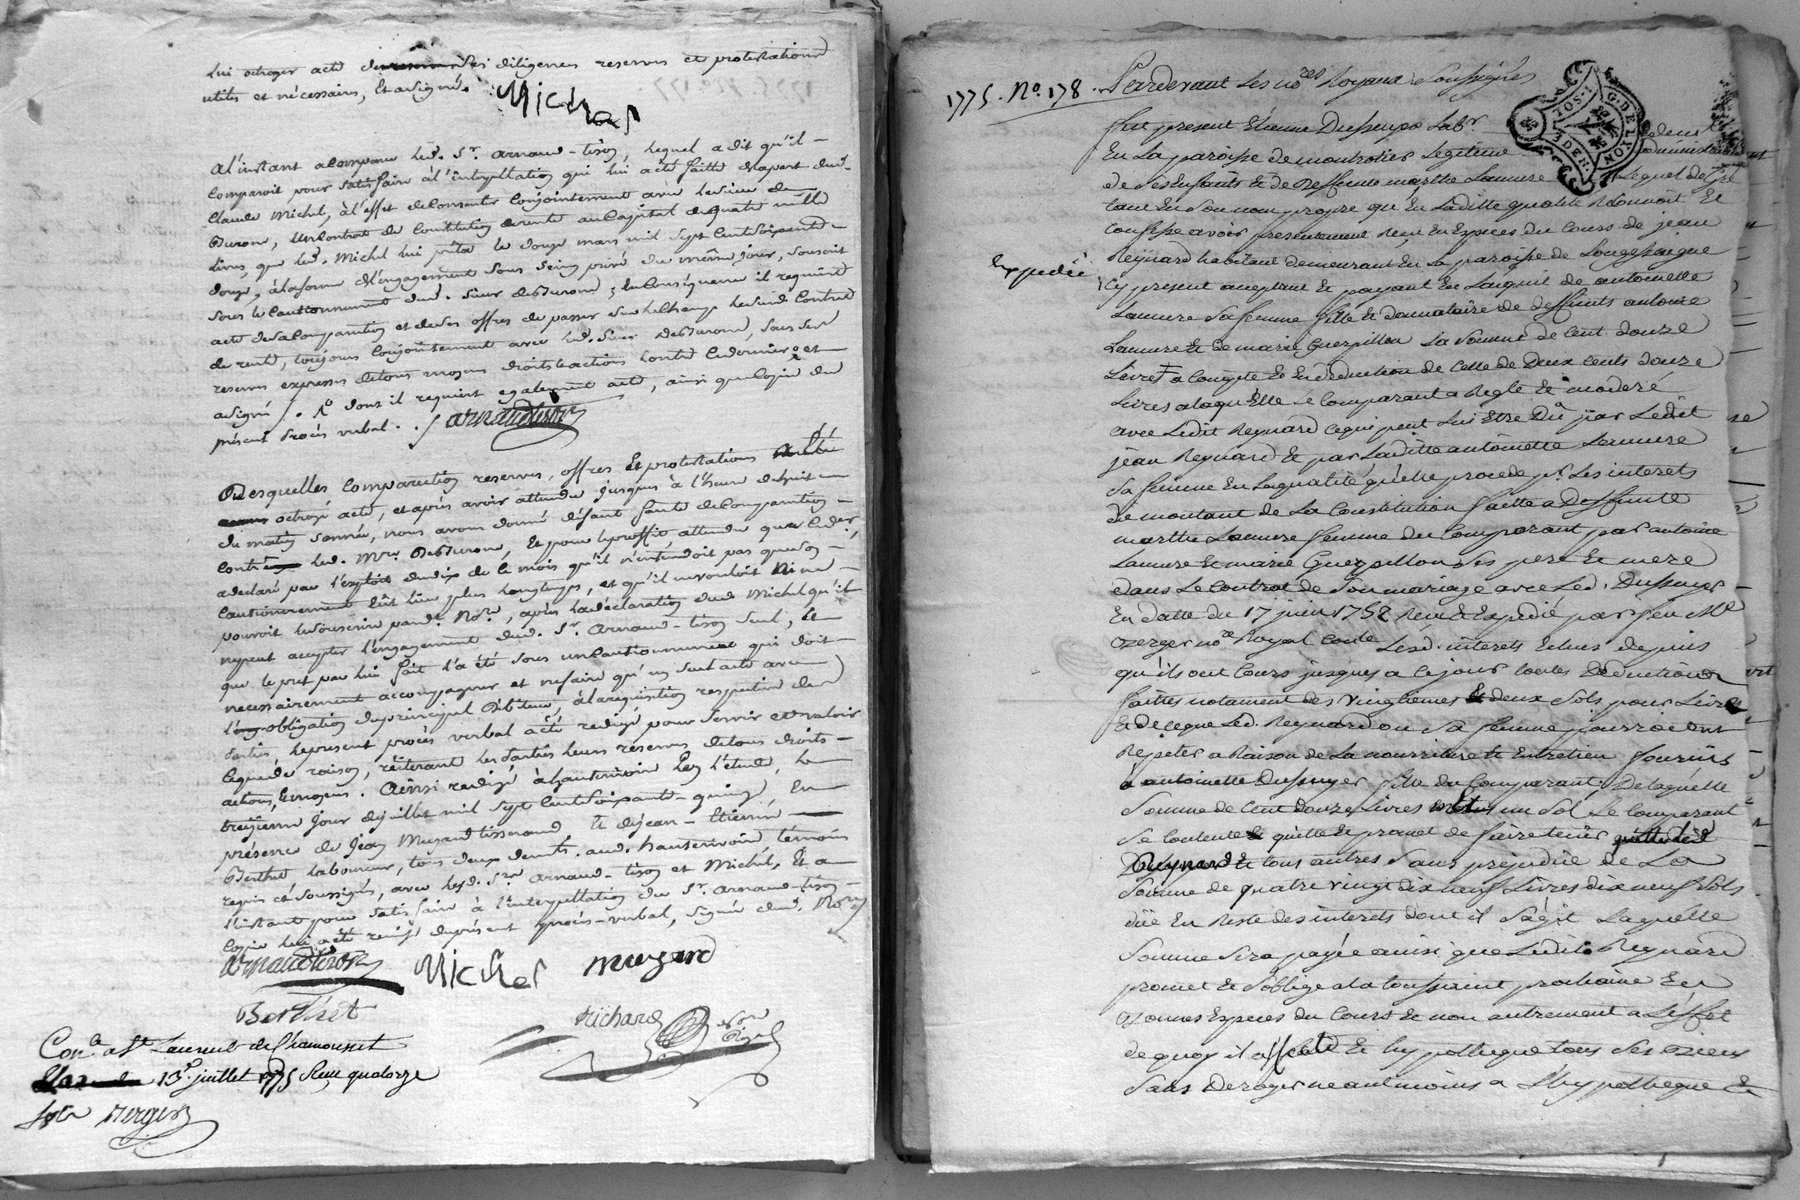 lui octroyer acte de ses diligences reserves et protestations
utiles et nécessaires, Et a signé.
Michel
A l'instant a comparu led. Sr. Arnaud-tison lequel a dit qu'il
comparoit pour satisfaire à l'interpellation qui lui a été faitte de la part dud.
Claude Michel, à l'effet de consentir conjointement avec le sieur de
un Contrat de Constitution de rente au Capital de quatre mille
Livres, que led. Michel lui prêta le douze mars mil sept Cent soixante
douze, à la forme de l'engagement sous seing privé du même jour, souscrit
sous le Cautionnement dud. sieur ; En Conséquence il requiert
acte de sa Comparution et de ses offres de passer sur le Champ led. Contrat
de rente, toujours Conjointement avec led. sieur sous les
reserves expresses de tous moyens droits et actions contre ce dernier et
a signé /. dont il requiert également acte, ainsi que Copie du
présent Procès verbal. /. arnaudtison
Desquelles Comparution reserves, offres Et protestations
octroyé acte, et après avoir attendu jusques à l'heure de huit
du matin sonnée, nous avons donné défaut faute de Comparution
contre led. Et pour le proffit attendu que ce der.
a declaré par l'exploit du dix de ce mois qu'il n'entendoit pas que son
Cautionnement Eût lieu plus longtemps, et qu'il ne vouloit ni ne
pouvoit le souscrire pard. No.re, après la déclaration dud. Michel qu'il
ne peut accepter l'engagement dud. Sr. Arnaud-tison seul, Et
que le pret par lui fait l'a été sous un Cautionnement qui doit
nécessairement accompagner et ne faire qu'un seul acte avec
l'obligation du principal Débiteur, à la requisition respective des
Parties, le present procès verbal a été redigé pour servir et valoir
ce que de raison, réiterant les Parties leurs reserves de tous droits
actions, Et moyens. Ainsi redigé à hauterivoire En l'étude, le
treizieme jour de juillet mil sept Cent soixante-quinze, En
présence de Jean Muzard tisserand Et de jean-Etienne
Berthet laboureur, tous deux demts. aud. hauterivoire témoins
requis et soussignés, avec lesd. Srs. Arnaud-tison et Michel, Et a
l'instant pour satisfaire à l'interpellation du Sr. Arnaud-tison
Copie lui a été remise du present procès-verbal, signée dud. No.re
arnaudtison Michel muzard
Berthet
Richard
Con.lé a St Laurent de Chamousset
13e. juillet 1775 Reçu quatorze
sols

1775. No. 178. Pardevant Les no.res Royaux Soussignés
fut présent Etienne Dussuyer Lab.r
En La paroisse de montrotier Legitime administrateur
de Ses Enfants & de Deffunte marthe Laurent Lequel de gré
tant En Son nom propre qu'En Laditte qualité Reconnoit Et
Confesse avoir présentement Reçu En Espèces du Cours de jean
Reynard habitant demeurant En La paroisse de Longessaigne
Cy présent acceptant Et payant En L'aquit de antoinette
sa femme fille Et donnataire de deffunts antoine
Et de marie Guerpillon La Somme de Cent douze
Livres a Compte Et En déduction de Celle de Deux Cents douze
Livres a laquelle le Comparant a Reglé Et moderé
avec Ledit Reynard Ce qui peut lui Etre Dû par Ledit
jean Reynard Et par Laditte antoinette
Sa femme En La qualité qu'elle procede pr. Les interets
du montant de La Constitution faitte a Deffunte
marthe femme du Comparant par antoine
Et marie Guerpillon Ses pere Et mere
dans Le Contrat de Son mariage avec Led. Dussuyer
En datte du 17 juin 1752 Reçu & Expedié par feu Me
no.re Royal Lesd. interets Echus depuis
qu'ils ont Cours jusques a Ce jour toutes Déductions
faittes notament des vingtiemes Et deux Sols pour Livre
Et de Ce que Led. Reynard ou Sa femme pourroient
Repeter a Raison de La nourriture Et Entretien fournis
a antoinette Dussuyer fille du Comparant De laquelle
Somme de Cent douze Livres un Sol Le Comparant
Se Contente quitte Et promet de faire tenir quitte Led.
Reynard Et tous autres Sans préjudice de La
Somme de quatre vingt dix neuf Livres dix neuf Sols
dûe En Reste des interets dont il S'agit Laquelle
Somme Sera payée ainsi que Ledit Reynard
promet Et S'oblige a la toussaint prochaine En
bonnes Especes du Cours Et non autrement a L'effet
de quoy il affecte Et hypotheque tous Ses Biens
Sans Deroger neanmoins a L'hypotheque &
Expediée
G. DE LYON